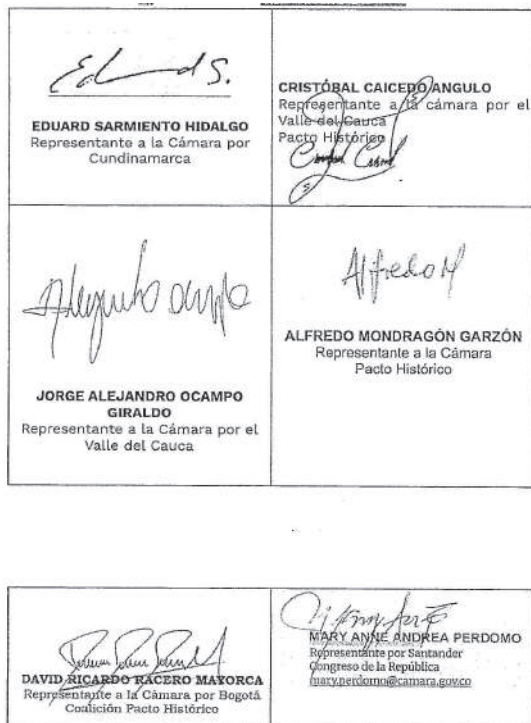 Ed S.
EDUARD SARMIENTO HIDALGO
Representante a la Cámara por
Cundinamarca
CRISTÓBAL CAICEDO ANGULO
Representante a la cámara por el
Valle del Cauca
Pacto Histórico
Alejandro Ocampo
JORGE ALEJANDRO OCAMPO
GIRALDO
Representante a la Cámara por el
Valle del Cauca
Alfredo M
ALFREDO MONDRAGÓN GARZÓN
Representante a la Cámara
Pacto Histórico
DAVID RICARDO RACERO MAYORCA
Representante a la Cámara por Bogotá
Coalición Pacto Histórico
MARY ANNE ANDREA PERDOMO
Representante por Santander
Congreso de la República
mary.perdomo@camara.gov.co